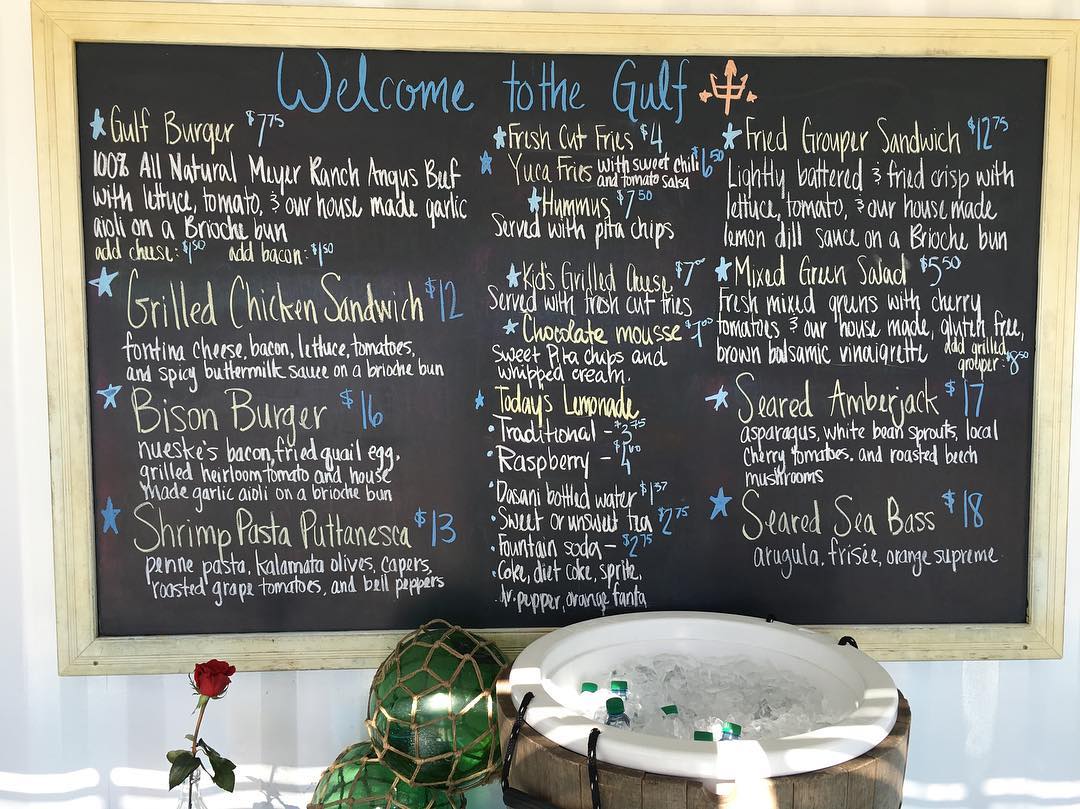 Welcome to the Gulf
Gulf Burger $7.75
100% All Natural Meyer Ranch Angus Beef
with lettuce, tomato, & our house made garlic
aioli on a Brioche bun
add cheese: $1.50 add bacon: $1.50
Grilled Chicken Sandwich $12
fontina cheese, bacon, lettuce, tomatoes,
and spicy buttermilk sauce on a brioche bun
Bison Burger $16
nueske's bacon, fried quail egg,
grilled heirloom tomato and house
made garlic aioli on a brioche bun
Shrimp Pasta Puttanesca $13
penne pasta, kalamata olives, capers,
roasted grape tomatoes, and bell peppers
Fresh Cut Fries $4
Yuca Fries with sweet chili $6.50
and tomato salsa
Hummus $7.50
Served with pita chips
Kid's Grilled Cheese $7
Served with fresh cut fries
Chocolate mousse $7.00
Sweet Pita chips and
whipped cream.
Today's Lemonade
Traditional - $3.75
Raspberry - $4.00
Dasani bottled water $1.37
Sweet or unsweet tea $2.75
Fountain soda - $2.75
Coke, diet coke, sprite,
dr. pepper, orange fanta
Fried Grouper Sandwich $12.75
Lightly battered & fried crisp with
lettuce, tomato, & our house made
lemon dill sauce on a Brioche bun
Mixed Green Salad $5.50
Fresh mixed greens with cherry
tomatoes & our house made, gluten free,
brown balsamic vinaigrette add grilled
grouper: $8.50
Seared Amberjack $17
asparagus, white bean sprouts, local
cherry tomatoes, and roasted beech
mushrooms
Seared Sea Bass $18
arugula, frisée, orange supreme